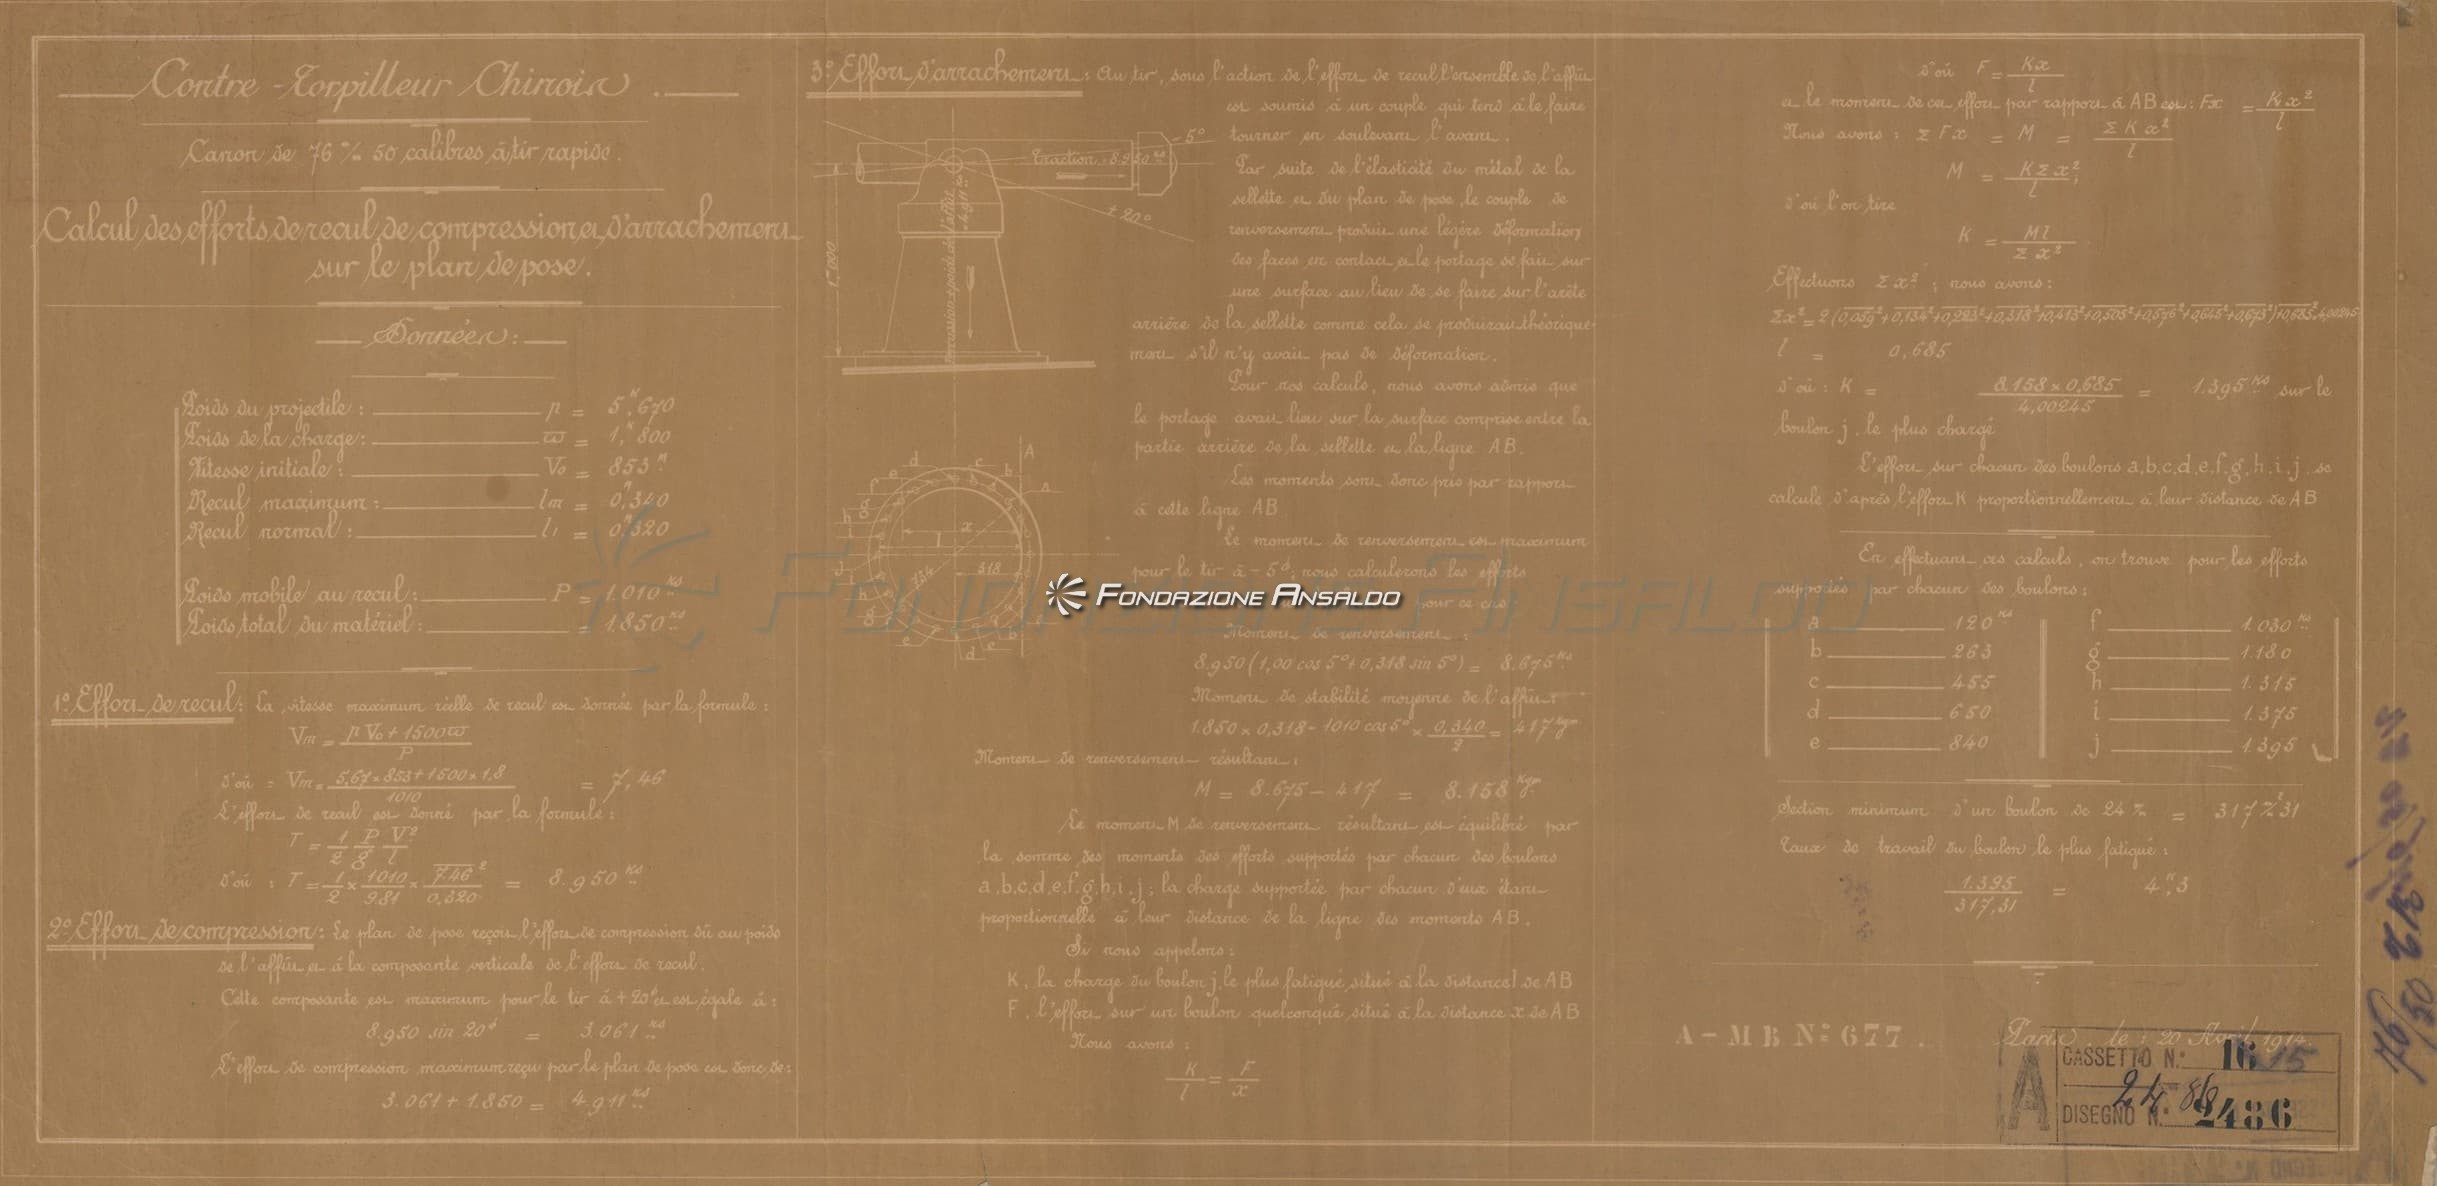 Contre-Torpilleur Chinois.
Canon de 76 m/m 50 calibres à tir rapide.
Calcul des efforts de recul, de compression et d'arrachement
sur le plan de pose.
Données:
Poids du projectile: p = 5,K670
Poids de la charge: ϖ = 1,K800
Vitesse initiale: Vo = 853 m
Recul maximum: lm = 0,m340
Recul normal: l1 = 0,m320
Poids mobile au recul: P = 1.010 Ks
Poids total du matériel: = 1.850 Ks
1º Effort de recul: La vitesse maximum réelle de recul est donnée par la formule:
Vm = (p Vo + 1500 ϖ) / P
d'où : Vm = (5,67 × 853 + 1500 × 1,8) / 1010 = 7,46
L'effort de recul est donné par la formule:
T = 1/2 P/g V²/l
d'où : T = 1/2 × 1010/9.81 × 7.46²/0,320 = 8.950 Ks
2º Effort de compression: Le plan de pose reçoit l'effort de compression dû au poids
de l'affût et à la composante verticale de l'effort de recul.
Cette composante est maximum pour le tir à + 20° et est égale à:
8.950 sin 20° = 3.061 Ks
L'effort de compression maximum reçu par le plan de pose est donc de:
3.061 + 1.850 = 4.911 Ks
3º Effort d'arrachement: Au tir, sous l'action de l'effort de recul l'ensemble de l'affût
est soumis à un couple qui tend à le faire
tourner en soulevant l'avant.
Par suite de l'élasticité du métal de la
sellette et du plan de pose, le couple de
renversement produit une légère déformation
des faces en contact et le portage se fait sur
une surface au lieu de se faire sur l'arête
arrière de la sellette comme cela se produirait théorique-
ment s'il n'y avait pas de déformation.
Pour nos calculs, nous avons admis que
le portage avait lieu sur la surface comprise entre la
partie arrière de la sellette et la ligne AB.
Les moments sont donc pris par rapport
à cette ligne AB
Le moment de renversement est maximum
pour le tir à - 5°; nous calculerons les efforts
pour ce cas
Moment de renversement:
8.950 (1,00 cos 5° + 0,318 sin 5°) = 8.675 Ks
Moment de stabilité moyenne de l'affût:
1.850 × 0,318 - 1010 cos 5° × 0,340/2 = 417 Kgm
Moment de renversement résultant:
M = 8.675 - 417 = 8.158 Kgm
Le moment M de renversement résultant est équilibré par
la somme des moments des efforts supportés par chacun des boulons
a,b,c,d,e,f,g,h,i,j; la charge supportée par chacun d'eux étant
proportionnelle à leur distance de la ligne des moments AB.
Si nous appelons:
K, la charge du boulon j, le plus fatigué, situé à la distance l de AB
F, l'effort sur un boulon quelconque situé à la distance x de AB
Nous avons:
K/l = F/x
- 5°
Traction = 8.950 Ks
+ 20°
1,m000
4.911 Ks
A
a b c d e f g h i j
x
l
734
318
d'où F = Kx/l
et le moment de cet effort par rapport à AB est: Fx = Kx²/l
Nous avons: Σ Fx = M = Σ K x²/l
M = K Σ x²/l
d'où l'on tire
K = Ml / Σ x²
Effectuons Σ x²; nous avons:
Σx² = 2 (0,059² + 0,134² + 0,223² + 0,318² + 0,413² + 0,505² + 0,576² + 0,645² + 0,673²) + 0,685² = 4,00245
l = 0,685
d'où: K = (8.158 × 0,685) / 4,00245 = 1.395 Ks sur le
boulon j, le plus chargé
L'effort sur chacun des boulons a,b,c,d,e,f,g,h,i,j, se
calcule d'après l'effort K proportionnellement à leur distance de AB
En effectuant ces calculs, on trouve pour les efforts
supportés par chacun des boulons:
a 120 Ks f 1.030 Ks
b 263 g 1.180
c 455 h 1.315
d 650 i 1.375
e 840 j 1.395
Section minimum d'un boulon de 24 m/m = 317 m/m² 31
Taux de travail du boulon le plus fatigué:
1.395 / 317,31 = 4,K3
A - M B Nº 677.
Paris, le 20 Avril 1914.
A
CASSETTO N.º 16 15
DISEGNO N.º 2486
2486
76/50
FONDAZIONE ANSALDO
FONDAZIONE ANSALDO